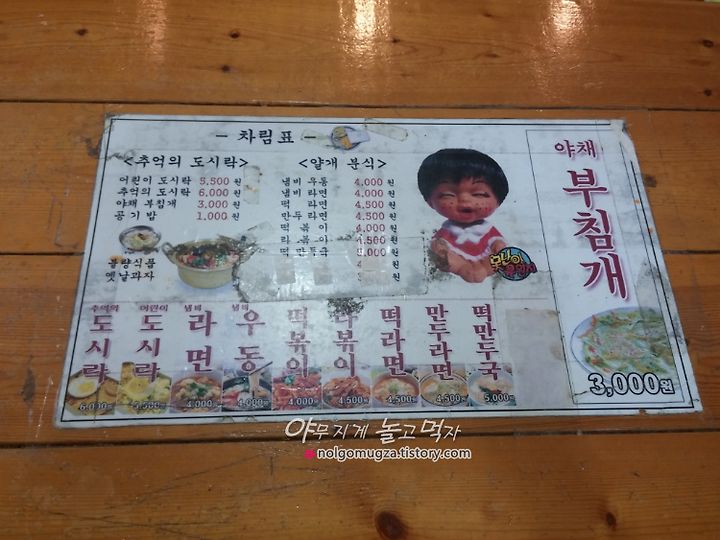 - 차림표 -
<추억의 도시락>
어린이 도시락 5,500원
추억의 도시락 6,000원
야채 부침개 3,000원
공기밥 1,000원
불량식품
옛날과자
<얄개 분식>
냄비 우동 4,000원
냄비 라면 4,000원
떡 라면 4,500원
만두 라면 4,500원
떡볶이 4,000원
라볶이 4,500원
떡 만둣국 5,000원
원
야채
부침개
3,000원
추억의 도시락 6,000원
어린이 도시락 5,500원
냄비 라면 4,000원
냄비 우동 4,000원
떡볶이 4,000원
라볶이 4,500원
떡라면 4,500원
만두라면 4,500원
떡만두국 5,000원
야무지게 놀고먹자
nolgomugza.tistory.com